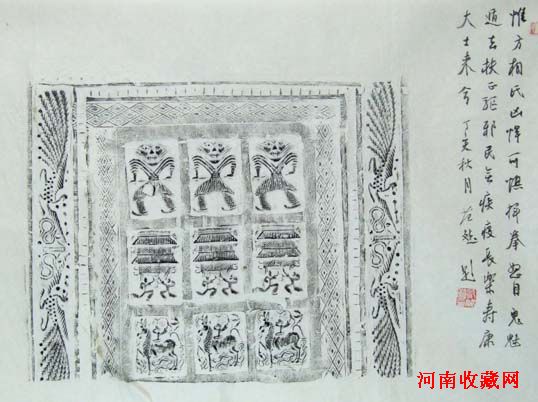 惟方相氏凶悍可惧挥拳怒目鬼魅
遁去扶正驱邪民无疾疫长樂寿康
大士来兮 丁亥秋月
河南收藏网